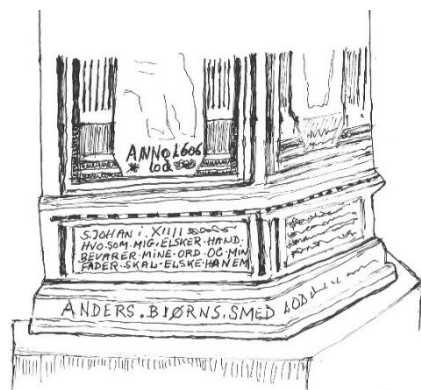 ANNO 1606
LOD
S.JOHAN i. XIIII
HVO.SOM.MIG.ELSKER.HAND.
BEVARER.MINE.ORD.OC.MIN
FADER.SKAL.ELSKE.HANEM
ANDERS.BIØRNS.SMED LOD